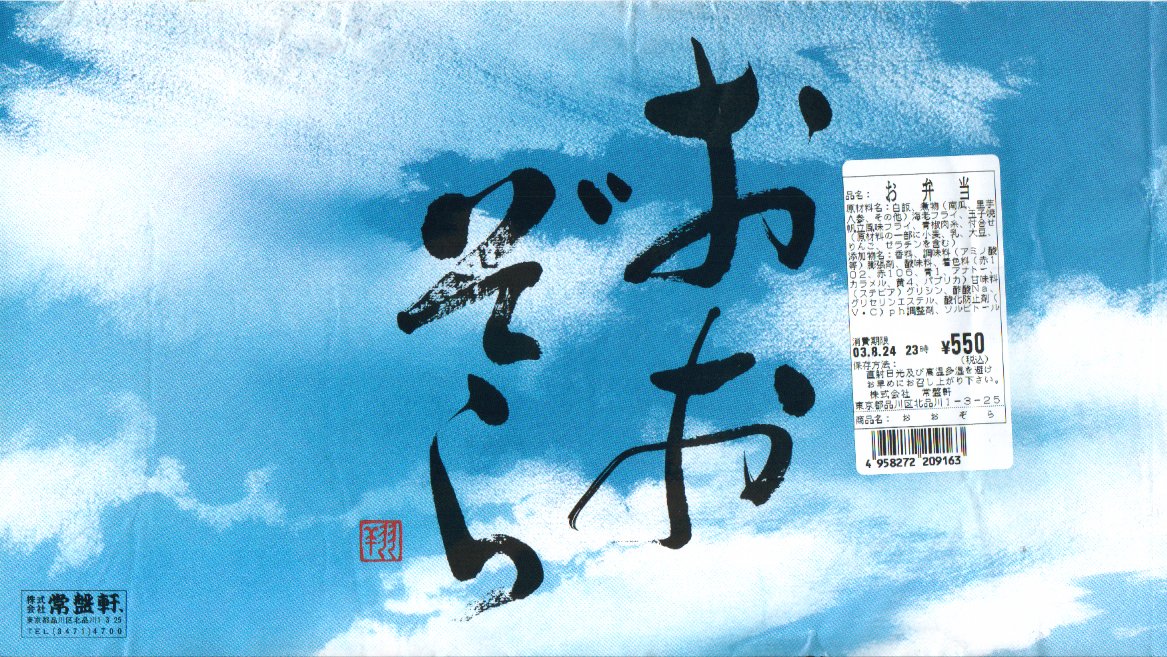 おお
ぞら
翔
品名: お弁当
原材料名:白飯、煮物(南瓜、里芋
人参、その他)海老フライ、玉子焼
帆立風味フライ、青椒肉糸、付合せ
(原材料の一部に小麦、乳、大豆
りんご、ゼラチンを含む)
添加物名:香料、調味料(アミノ酸
等)膨張剤、酸味料、着色料(赤1
02、赤106、青1、アナトー、
カラメル、黄4、パプリカ)甘味料
(ステビア)グリシン、酢酸Na、
グリセリンエステル、酸化防止剤(
V・C)ph調整剤、ソルビトール
消費期限
03.8.24 23時 ¥550
(税込)
保存方法:
直射日光及び高温多湿を避け
お早めにお召し上がり下さい。
株式会社 常盤軒
東京都品川区北品川1-3-25
商品名: おおぞら
4 958272 209163
株式会社 常盤軒
東京都品川区北品川1-3-25
TEL(3471)4700